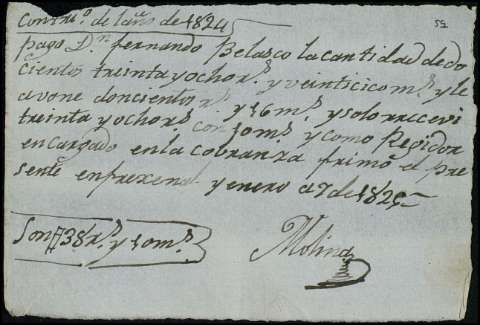 Contrio. de laño de 1824 55
pago Dn. fernando Velasco la cantidad de do
cientos treinta y ochors. y veinticicoms. y le
avone doncientos rs. y 16 ms. y solo rrecevi
treinta y ochors. con 10ms. y como Regidor
encargado en la cobranza frimo el pre
sente en frexenal y enero a 7 de 1825
Son # 38rs. y 10ms.
Molina